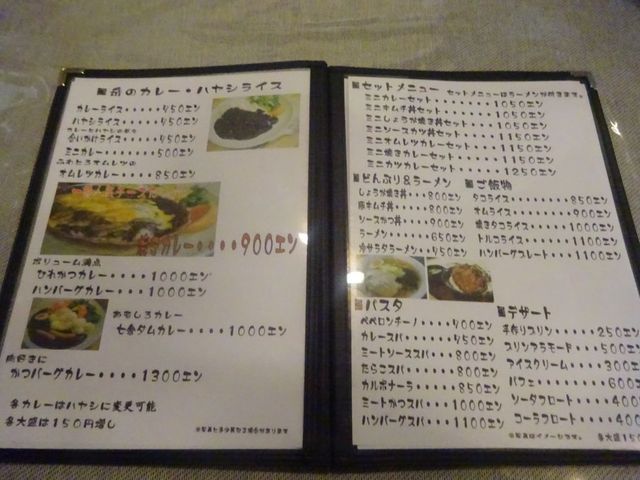 カレーライス・・・・・
ハヤシライス・・・・・
合いがけライス・・・
ミニカレー・・・・・・500エン
ふわとろオムレツの
オムレツカレー・・・・850エン
カレー・・・・900エン
ボリューム満点
ひれかつカレー・・・・1000エン
ハンバーグカレー・・・1000エン
おもしろカレー
カツバーグカレー・・・・1300エン
各カレーはハヤシに変更可能
各大盛は150円増し
■セットメニュー セットメニューはラーメンが付きます。
ミニカレーセット・・・・・・・1050エン
ミニキムチ丼セット・・・・・・1050エン
ミニしょうが焼き丼セット・・・1050エン
ミニソースカツ丼セット・・・・1150エン
ミニオムレツカレーセット・・・1150エン
ミニ焼きカレーセット・・・・・1150エン
ミニカツカレーセット・・・・・1250エン
■どんぶり&ラーメン
しょうが焼き丼・・・800エン
豚キムチ丼・・・・・800エン
ソースかつ丼・・・・900エン
ラーメン・・・・・・650エン
冷サラダラーメン・・
■ご飯物
タコライス・・・・・・850エン
オムライス・・・・・・900エン
焼きタコライス・・・・1000エン
トルコライス・・・・・1100エン
ハンバーグプレート・・1100エン
■パスタ
ペペロンチーノ・・・・
カレースパ・・・・・・
ミートソーススパ・・・800エン
たらこスパ・・・・・・800エン
カルボナーラ・・・・・850エン
ミートかつスパ・・・・1000エン
ハンバーグスパ・・・・1100エン
■デザート
手作りプリン・・・・・250エン
プリンアラモード・・・500エン
アイスクリーム・・・・300エ
パフェ・・・・・・・・600
ソーダフロート・・・・400
コーラフロート・・・・400
※写真はイメージです。
各大盛150